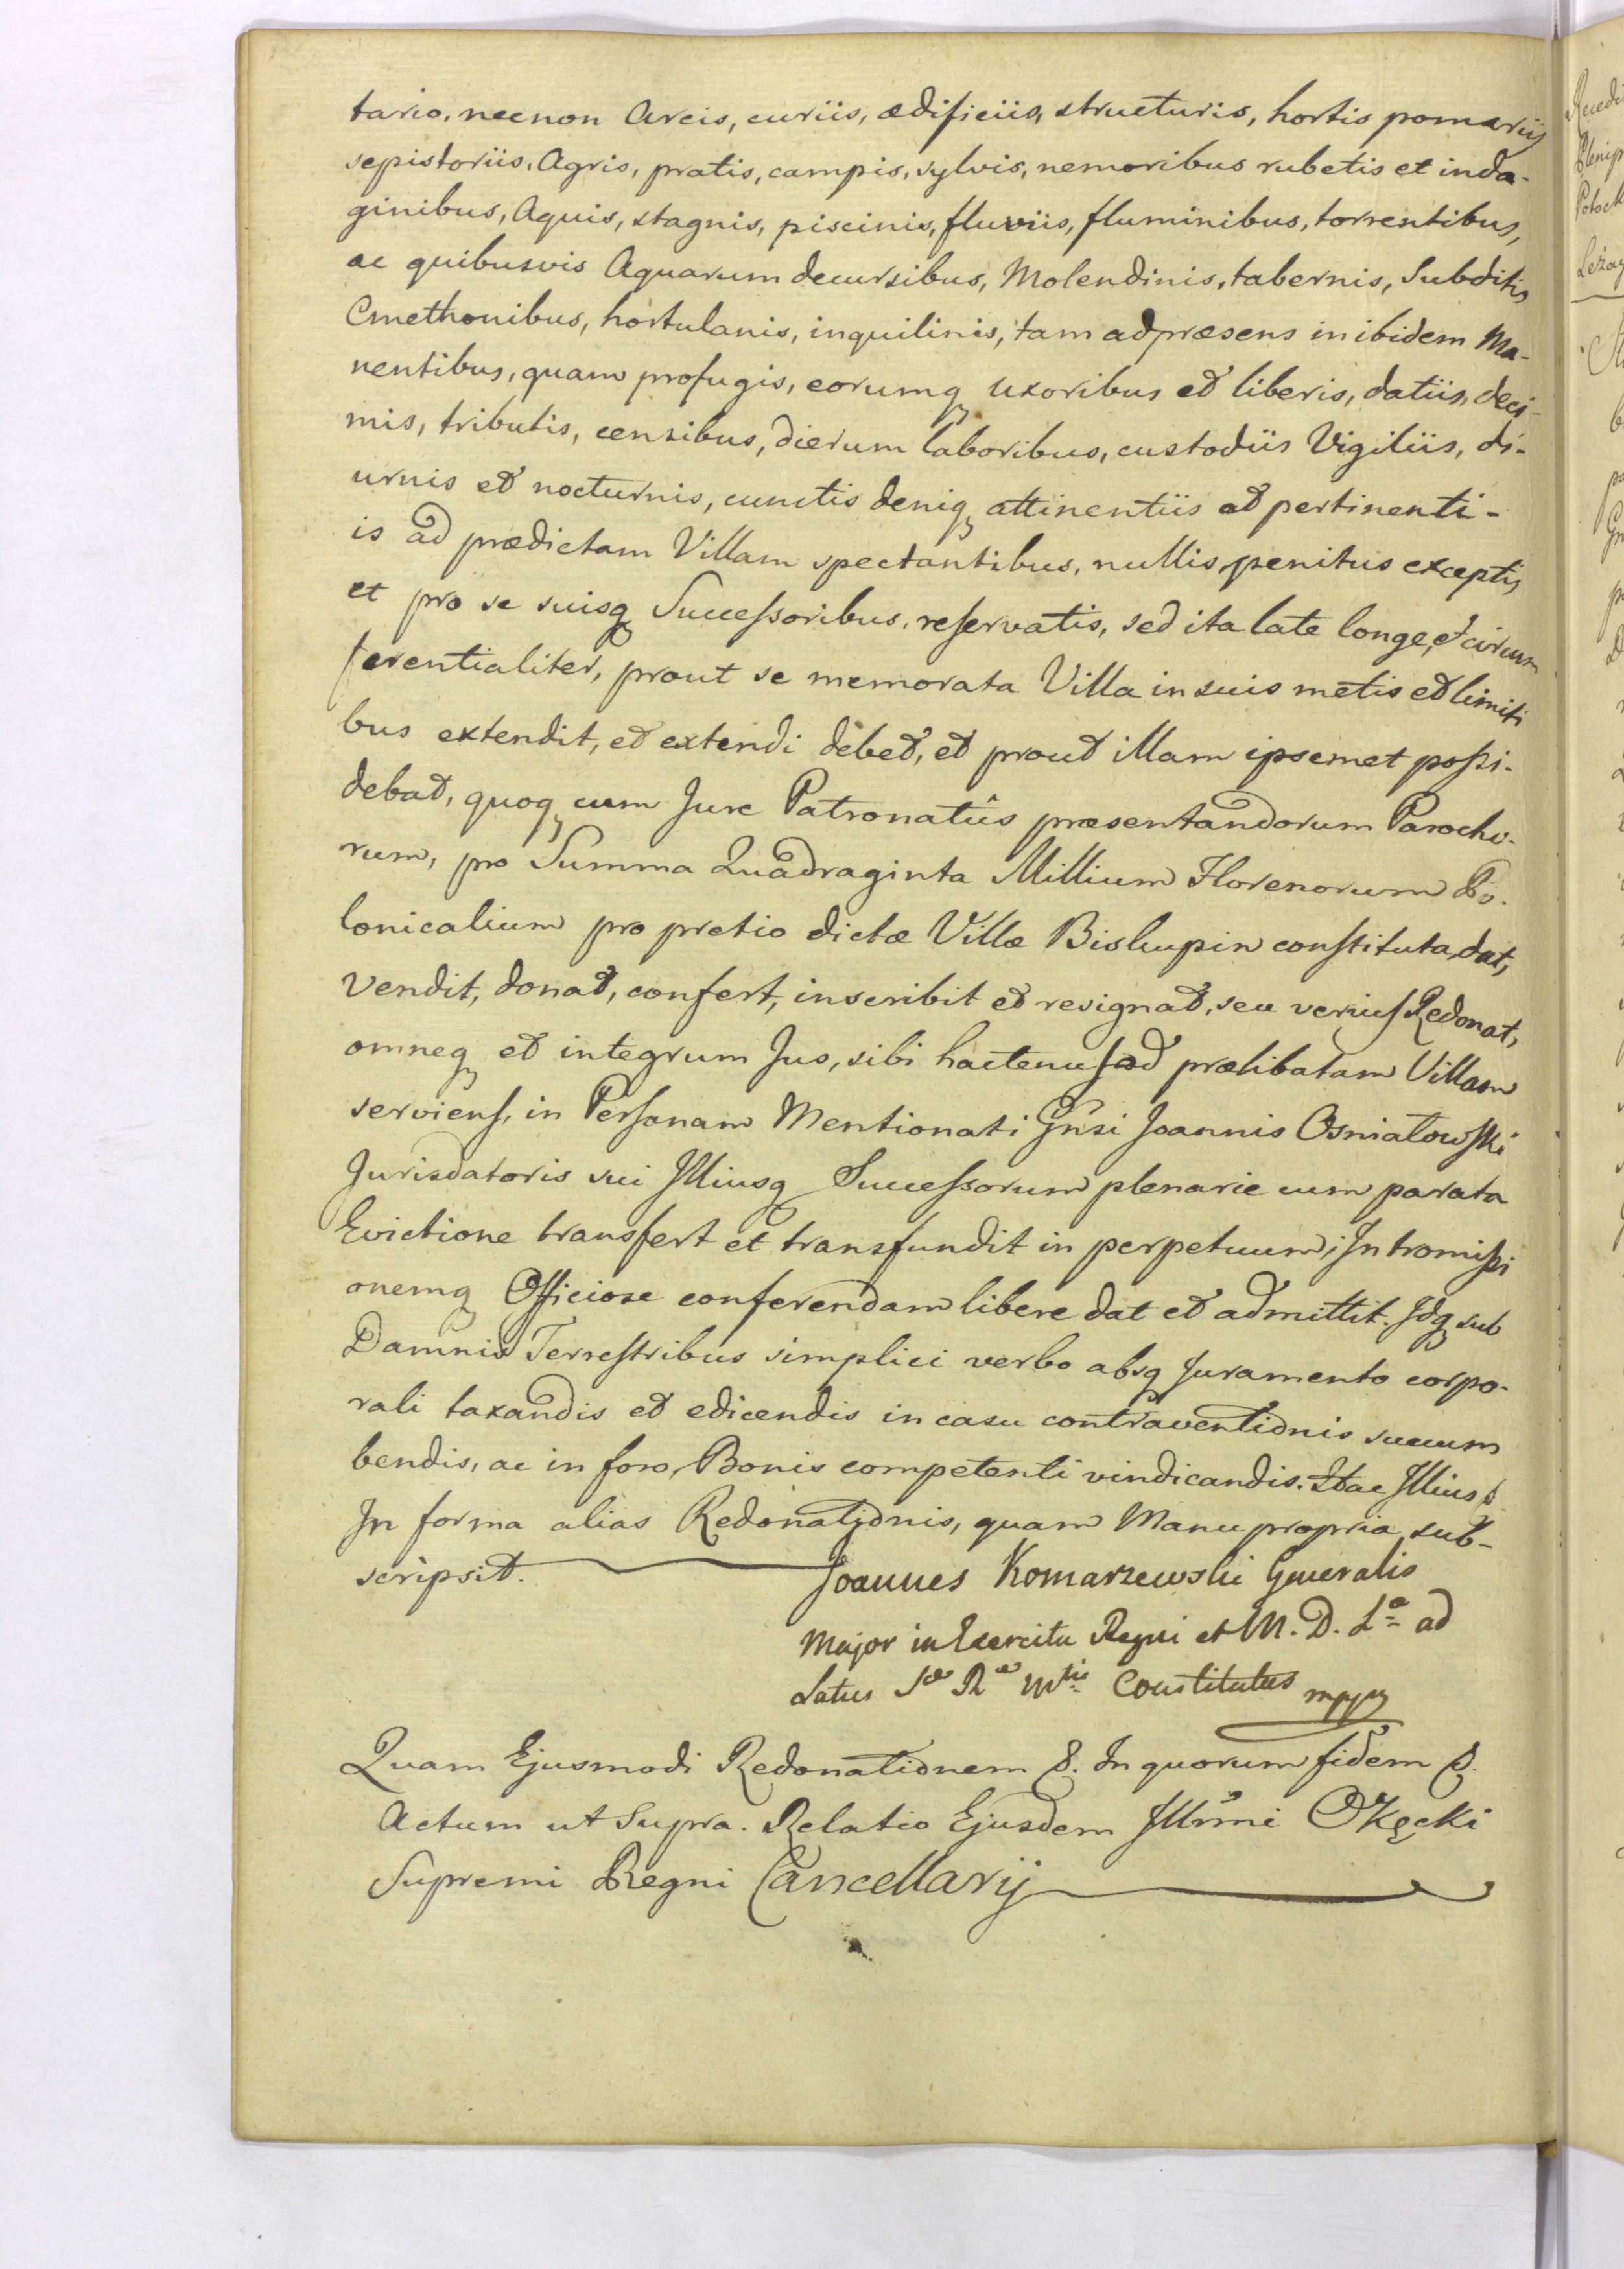 tario, necnon Arcis, curiis, ædificiis, structuris, hortis pomariis
sepistoriis, Agris, pratis, campis, sylvis, nemoribus rubetis et inda-
ginibus, Aquis, stagnis, piscinis, fluviis, fluminibus, torrentibus,
ac quibusvis Aquarum decursibus, Molendinis, tabernis, Subditis
Cmethonibus, hortulanis, inquilinis, tam adpræsens in ibidem Ma-
nentibus, quam profugis, eorumq uxoribus et liberis, datiis, deci-
mis, tributis, censibus, dierum laboribus, custodiis Vigiliis, di-
urnis et nocturnis, cunctis deniq attinentiis et pertinenti-
is ad prædictam Villam spectantibus, nullis penitus exceptis
et pro se suisq Successoribus, reservatis, sed ita late longe, et circum
ferentialiter, prout se memorata Villa in suis metis et limiti
bus extendit, et extendi debet, et prout illam ipsemet possi-
debat, quoq cum Jure Patronatûs præsentandorum Parocho-
rum, pro Summa Quadraginta Millium Florenorum Po-
lonicalium pro pretio dictæ Villæ Biskupin constituta, dat,
Vendit, donat, confert, inscribit et resignat, seu verius Redonat,
omneq et integrum Jus, sibi hactenus ad prælibatam Villam
serviens, in Personam Mentionati Gnsi Joannis Osmiałowski
Jurisdatoris sui Illiusq Successorum plenarie cum parata
Evictione transfert et transfundit in perpetuum; Intromissi
onemq Officiose conferendam libere dat et admittit. Idq sub
Damnis Terrestribus simplici verbo absq Juramento corpo-
rali taxandis et edicendis in casu contraventionis succum
bendis, ac in foro, Bonis competenti vindicandis. Hac Illius
In forma alias Redonationis, quam Manu propria sub-
scripsit. Joannes Komarzewski Generalis
Major in Exercitu Regni et M. D. L ad
Latus S R Mtis Constitutus mpp
Quam Ejusmodi Redonationem &. In quorum fidem &.
Actum ut Supra. Relatio Ejusdem Illmi Okęcki
Supremi Regni Cancellarij